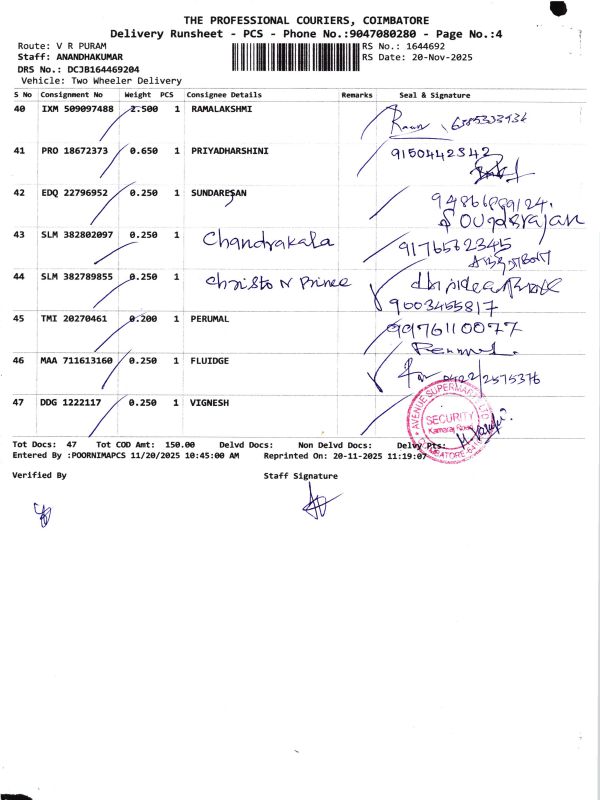 THE PROFESSIONAL COURIERS, COIMBATORE
Delivery Runsheet - PCS - Phone No.:9047080280 - Page No.:4
Route: V R PURAM RS No.: 1644692
Staff: ANANDHAKUMAR RS Date: 20-Nov-2025
DRS No.: DCJB164469204
Vehicle: Two Wheeler Delivery
S No Consignment No Weight PCS Consignee Details Remarks Seal & Signature
40 IXM 509097488 2.500 1 RAMALAKSHMI
41 PRO 18672373 0.650 1 PRIYADHARSHINI 9150442342
42 EDQ 22796952 0.250 1 SUNDARESAN
Soundarajan
43 SLM 382802097 0.250 1 Chandrakala 9176562345
44 SLM 382789855 0.250 1 Christo N Prince
9003455817
45 TMI 20270461 0.200 1 PERUMAL 9976110077
Perumal.
46 MAA 711613160 0.250 1 FLUIDGE 0422/2575376
47 DDG 1222117 0.250 1 VIGNESH
AVENUE SUPERMARTS LTD
SECURITY
Kamaraj Road
Tot Docs: 47 Tot COD Amt: 150.00 Delvd Docs: Non Delvd Docs: Delvy Pts:
Entered By :POORNIMAPCS 11/20/2025 10:45:00 AM Reprinted On: 20-11-2025 11:19:07
Verified By Staff Signature